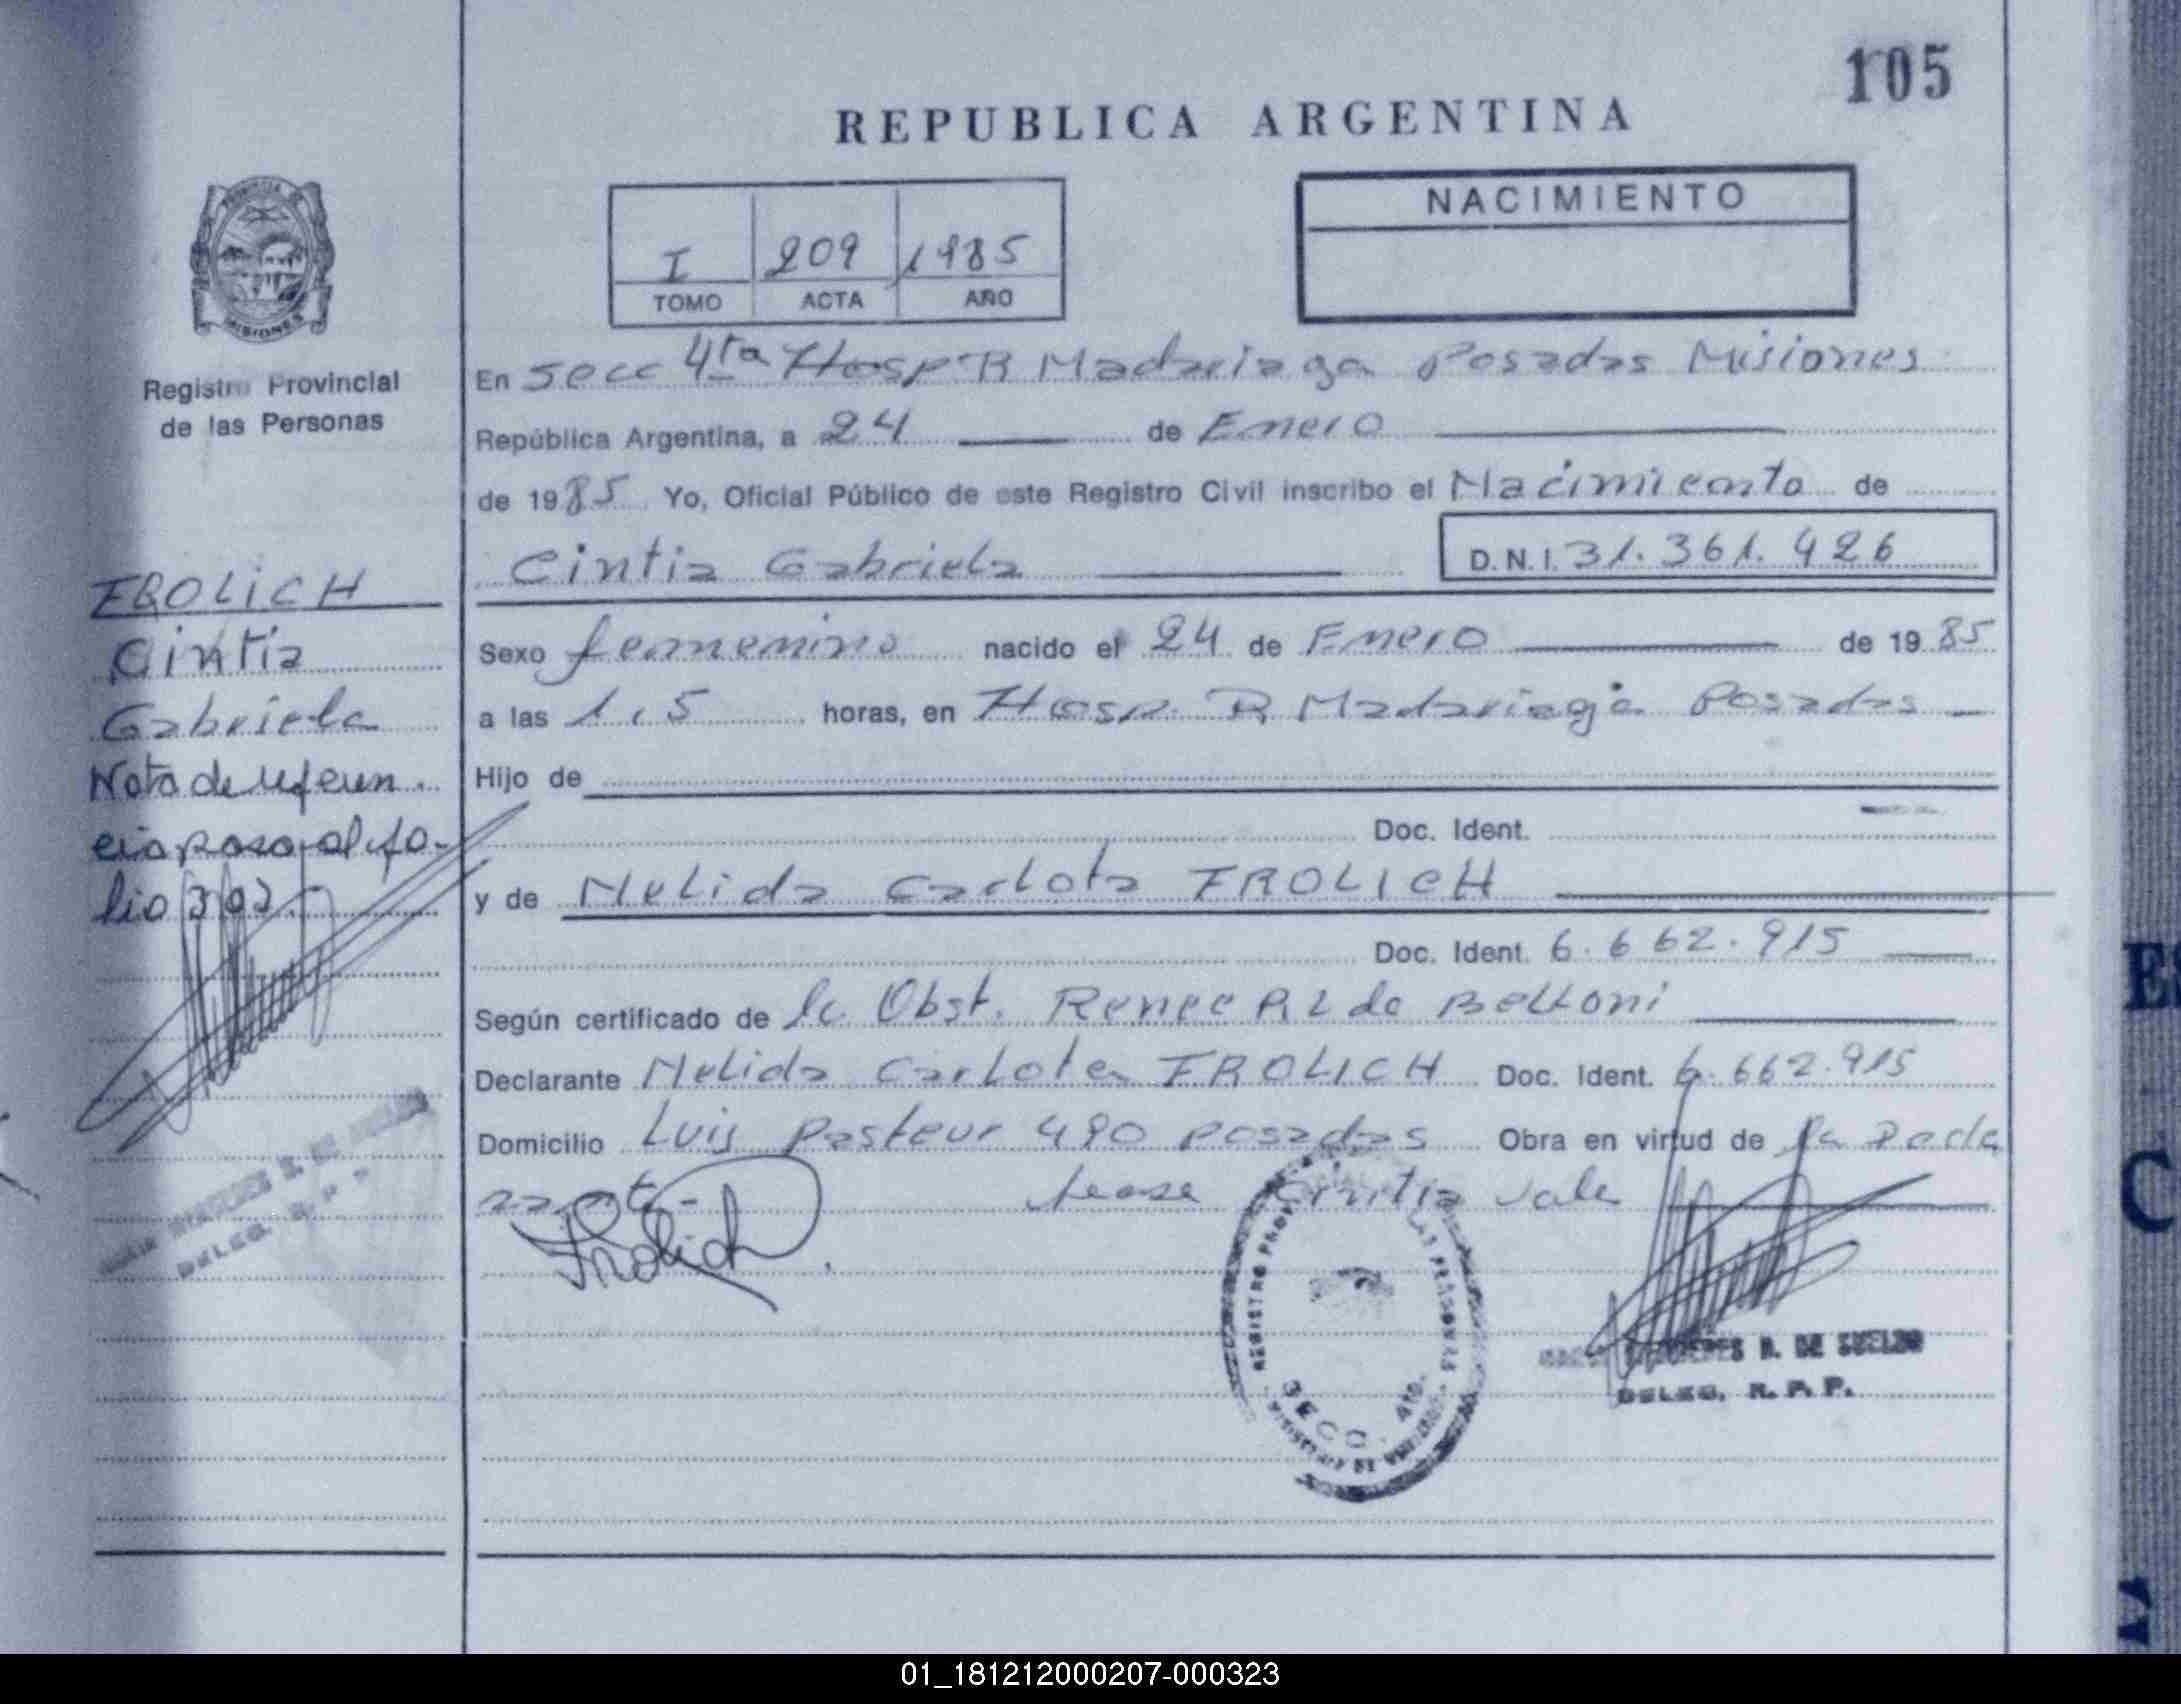 105
REPUBLICA ARGENTINA
NACIMIENTO
I 209 1985
TOMO ACTA AÑO
PROVINCIA
MISIONES
Registro Provincial
de las Personas
En Secc 4ta Hosp R Madariaga Posadas Misiones
República Argentina, a 24 de Enero
de 1985 Yo, Oficial Público de este Registro Civil inscribo el Nacimiento de
Cintia Gabriela
D.N.I. 31.361.426
FROLICH
Cintia
Gabriela
Nota de referen
cia pasa al fo-
lio 302
Sexo femenino nacido el 24 de Enero de 1985
a las 1,5 horas, en Hosp. R Madariaga Posadas
Hijo de
Doc. Ident.
y de Nelida Carlota FROLICH
Doc. Ident. 6.662.915
Según certificado de la Obst. Renee R L de Belloni
Declarante Nelida Carlota FROLICH Doc. Ident. 6.662.915
Domicilio Luis Pasteur 490 Posadas Obra en virtud de la
Lease Cintia vale
Frolich
REGISTRO PROV. LAS PERSONAS
SECC. 4ta.
R. DE SUELDO
DELEG. R. P. P.
DELEG. R. P. P.
01_181212000207-000323